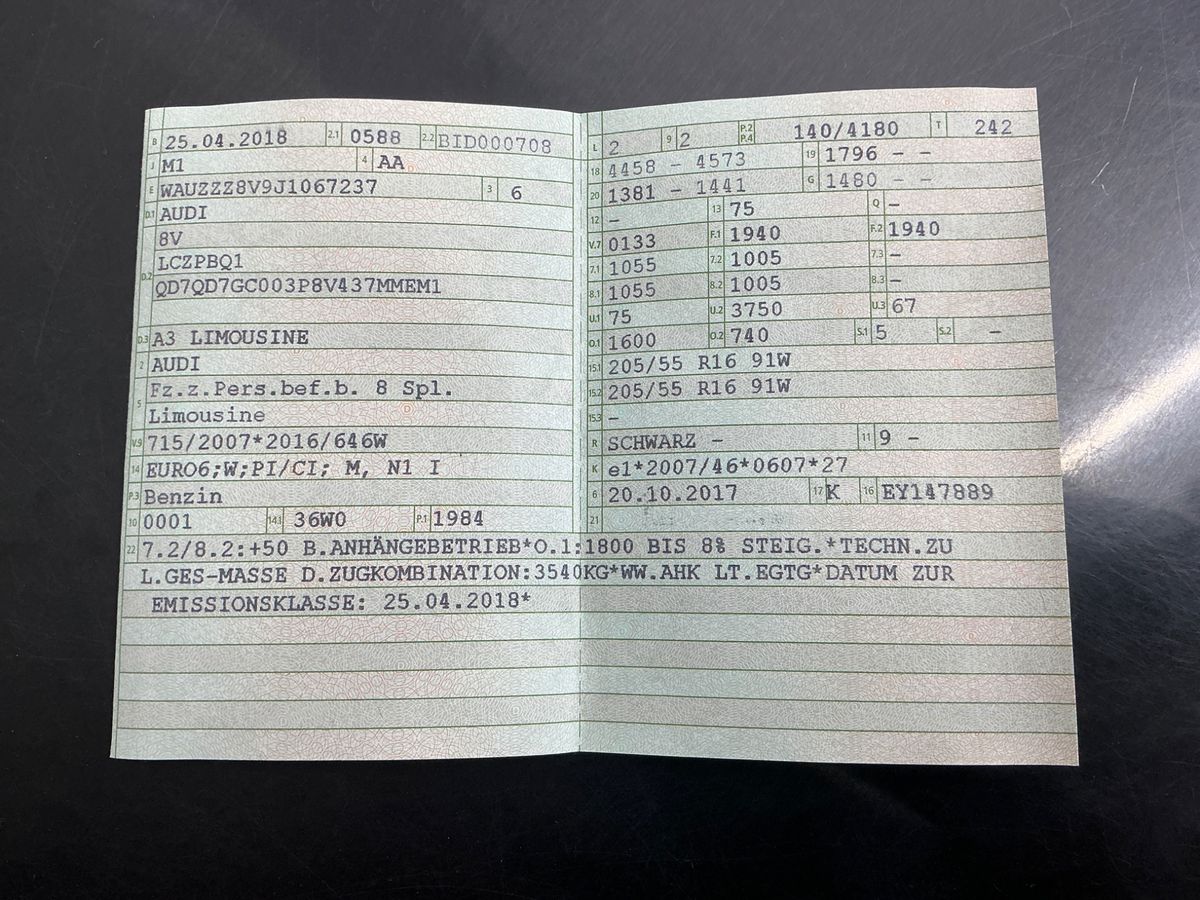 B 25.04.2018 2.1 0588 2.2 BID000708
J M1 4 AA
E WAUZZZ8V9J1067237 3 6
D.1 AUDI
8V
D.2 LCZPBQ1
QD7QD7GC003P8V437MMEM1
D.3 A3 LIMOUSINE
2 AUDI
5 Fz.z.Pers.bef.b. 8 Spl.
Limousine
V.9 715/2007*2016/646W
14 EURO6;W;PI/CI; M, N1 I
P.3 Benzin
10 0001 14.1 36W0 P.1 1984
L 2 9 2 P.2 P.4 140/4180 T 242
18 4458 - 4573 19 1796 - -
20 1381 - 1441 G 1480 - -
12 - 13 75 Q -
V.7 0133 F.1 1940 F.2 1940
7.1 1055 7.2 1005 7.3 -
8.1 1055 8.2 1005 8.3 -
U.1 75 U.2 3750 U.3 67
O.1 1600 O.2 740 S.1 5 S.2 -
15.1 205/55 R16 91W
15.2 205/55 R16 91W
15.3 -
R SCHWARZ - 11 9 -
K e1*2007/46*0607*27
6 20.10.2017 17 K 16 EY147889
21
22 7.2/8.2:+50 B.ANHÄNGEBETRIEB*O.1:1800 BIS 8% STEIG.*TECHN.ZU
L.GES-MASSE D.ZUGKOMBINATION:3540KG*WW.AHK LT.EGTG*DATUM ZUR
EMISSIONSKLASSE: 25.04.2018*